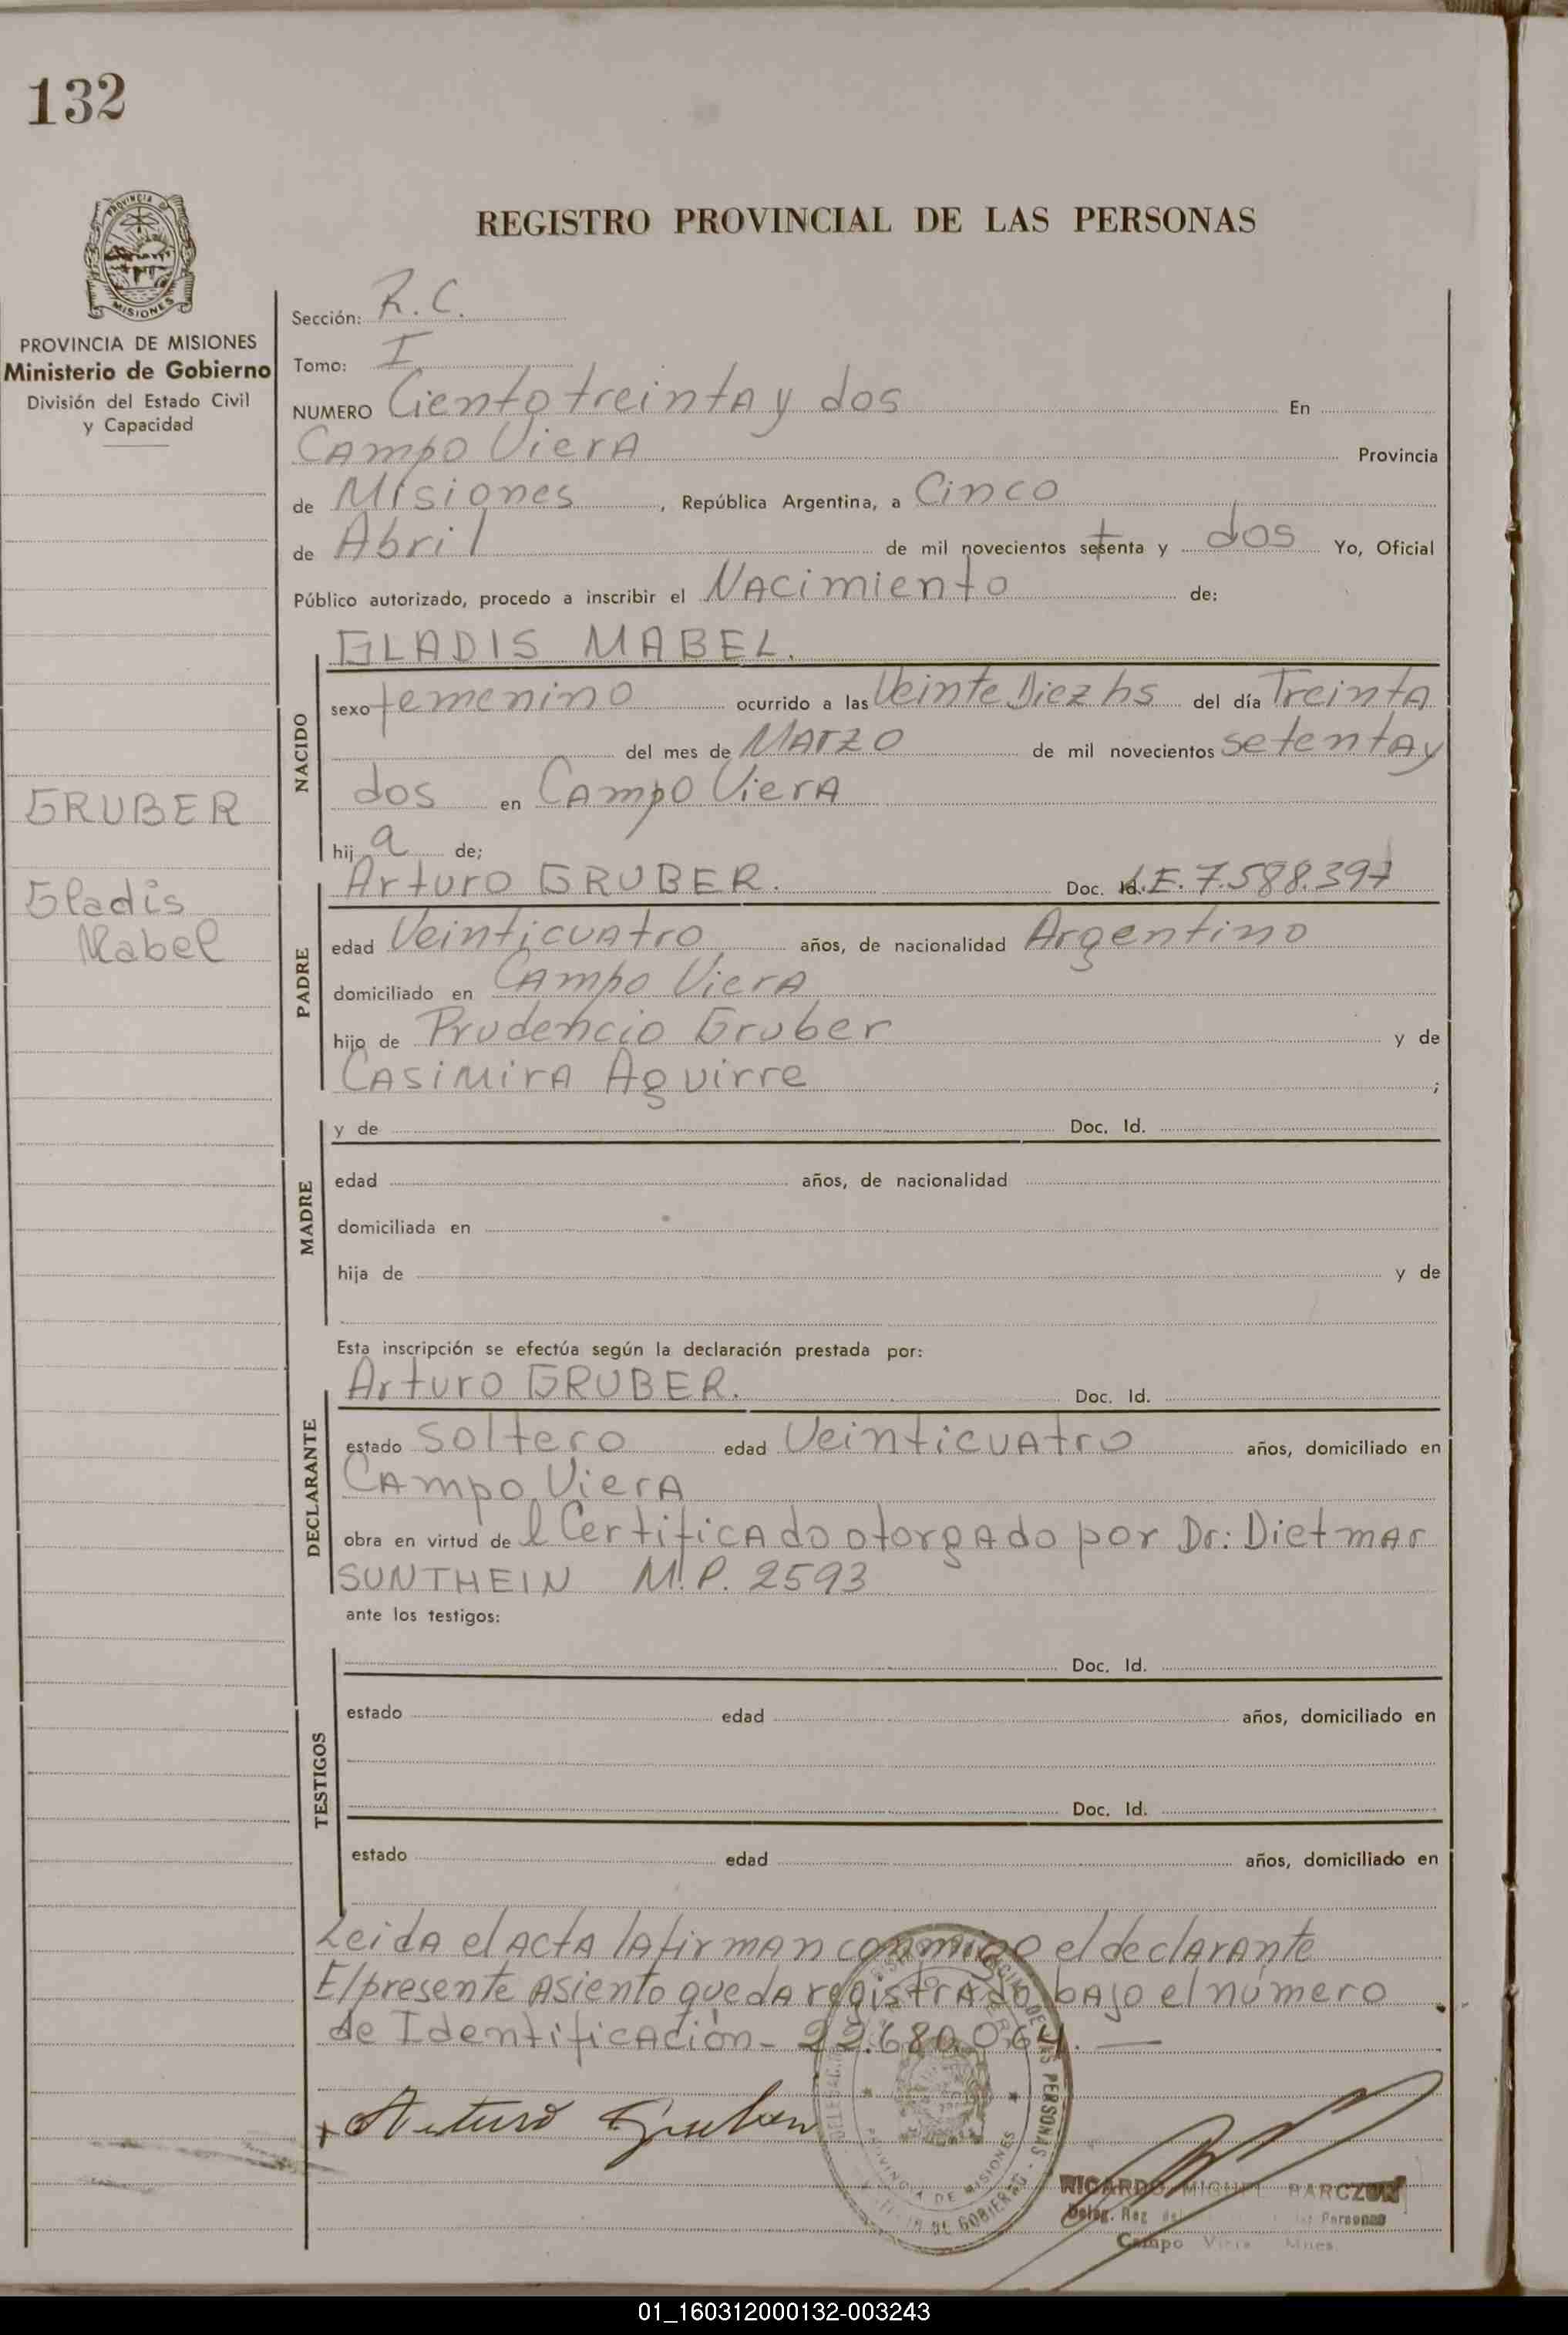 132
PROVINCIA DE
MISIONES
PROVINCIA DE MISIONES
Ministerio de Gobierno
División del Estado Civil
y Capacidad
GRUBER
Gladis
Mabel
REGISTRO PROVINCIAL DE LAS PERSONAS
Sección: R.C.
Tomo: I
NUMERO Ciento treinta y dos En
Campo Viera Provincia
de Misiones, República Argentina, a Cinco
de Abril de mil novecientos setenta y dos Yo, Oficial
Público autorizado, procedo a inscribir el Nacimiento de:
NACIDO
GLADIS MABEL.
sexo femenino ocurrido a las Veinte Diez hs del día Treinta
del mes de Marzo de mil novecientos setenta y
dos en Campo Viera
hija de;
PADRE
Arturo GRUBER. Doc. Id. L.E. 7.588.397
edad Veinticuatro años, de nacionalidad Argentino
domiciliado en Campo Viera
hijo de Prudencio Gruber y de
Casimira Aguirre ;
MADRE
y de Doc. Id.
edad años, de nacionalidad
domiciliada en
hija de y de
Esta inscripción se efectúa según la declaración prestada por:
DECLARANTE
Arturo GRUBER. Doc. Id.
estado soltero edad Veinticuatro años, domiciliado en
Campo Viera
obra en virtud del Certificado otorgado por Dr: Dietmar
SUNTHEIN M.P. 2593
ante los testigos:
TESTIGOS
Doc. Id.
estado edad años, domiciliado en
Doc. Id.
estado edad años, domiciliado en
Leida el acta la firman conmigo el declarante
El presente asiento queda registrado bajo el número
de Identificación - 22.680.064. —
+ Arturo Gruber
DE LAS PERSONAS
PROVINCIA DE MISIONES
DE GOBIERNO
RICARDO MIGUEL BARCZUK
Deleg. Reg. Personas
Campo Viera Mnes.
01_160312000132-003243